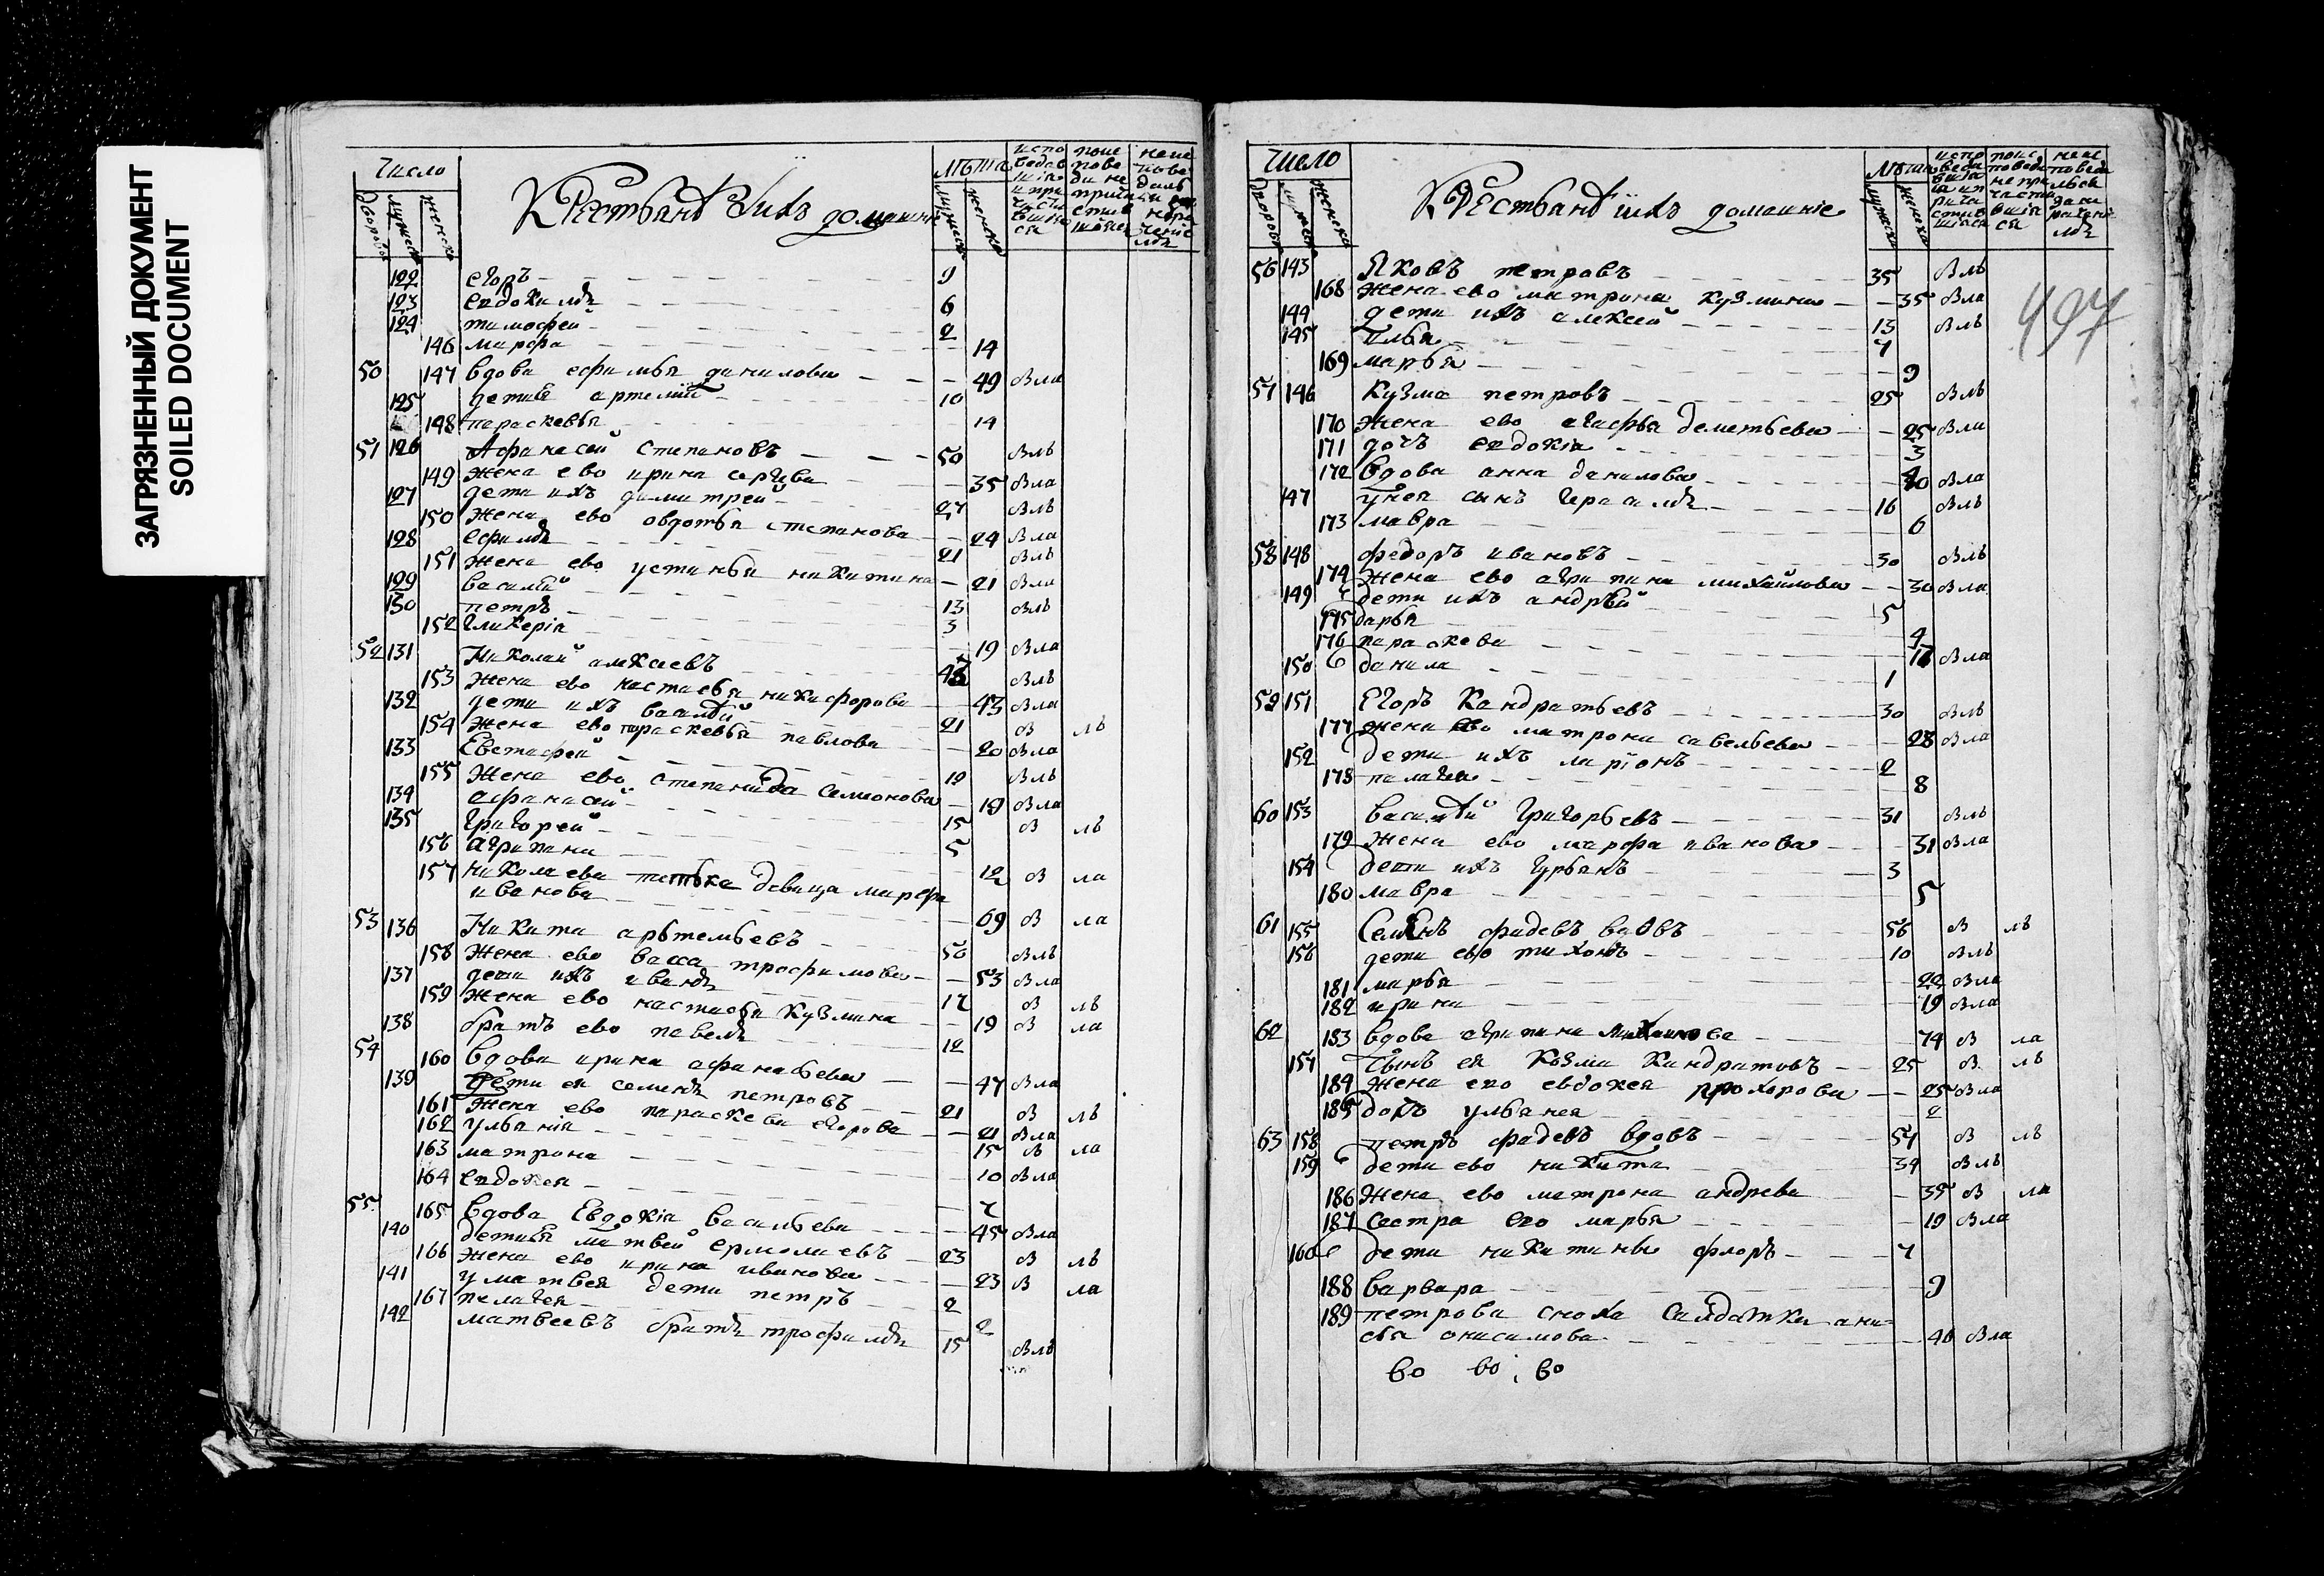 ЗАГРЯЗНЕННЫЙ ДОКУМЕНТ
SOILED DOCUMENT
число
дворовъ мужеска женска
Крестьянъ ихъ домашние
лѣта
мужеска женска
122 егоръ 9
123 евдокимъ 6
124 тимофеи 2
146 марфа 14
50 147 вдова ефимья данилова 49 в ла
125 дети ея артемій 10
148 параскевья 14
51 126 Афанасей степановъ 50 в лъ
149 жена ево ирина сергѣва 35 в ла
127 дети ихъ димитреи 27 в лъ
150 жена ево овдотья степанова 24 в ла
128 ефимъ 21 в лъ
151 жена ево устинья никитина 21 в ла
129 василій 13 в лъ
130 петръ 3
152 гликеріа 19 в ла
52 131 Николай алексеевъ 43 в лъ
153 жена ево настасья никифорова 43 в ла
132 дети ихъ василій 21 в лъ
154 жена ево параскевья павлова 20 в ла
133 Евстафей 19 в лъ
155 жена ево степанида семионова 19 в ла
134 афанасей 15 в лъ
135 григорей 5
156 агрипина 12 в ла
157 николаева тетка девица марфа
иванова 69 в ла
53 136 Никита арьтемьевъ 50 в лъ
158 жена ево васса трофимова 53 в ла
137 дети ихъ иванъ 17 в лъ
159 жена ево настасья кузмина 19 в ла
138 братъ ево павелъ 12
54 160 вдова ирина афанасьева 47 в ла
139 дети ея семенъ петровъ 21 в лъ
161 жена ево параскева егорова 21 в ла
162 ульяніа 15 в ла
163 матрона 10 в ла
164 евдокея 7
55 165 вдова Евдокіа васильева 45 в ла
140 дети ея матвей ермолаевъ 23 в лъ
166 жена ево ирина иванова 23 в ла
141 у матвея дети петръ 2
167 пелагея 2
142 матвеевъ братъ трофимъ 15 в лъ
число
дворовъ мужеска женска
Крестьянъ ихъ домашніе
лѣта
мужеска женска
497
56 143 Яковъ петровъ 35 в лъ
168 жена ево матрона кузмина 35 в ла
144 дети ихъ алексей 13 в лъ
145 Илья 7
169 марья 9
57 146 Кузма петровъ 25 в лъ
170 жена ево агафья деметьева 25 в ла
171 дочь евдокіа 3
172 вдова анна данилова 40 в ла
147 у нея сынъ герасимъ 16 в лъ
173 мавра 6
58 148 федоръ ивановъ 30 в лъ
174 жена ево агрипина михайлова 30 в ла
149 дети ихъ андрѣй 5
175 дарья 4
176 параскева 17 в ла
150 данила 1
59 151 Егоръ Кандратьевъ 30 в лъ
177 жена ево матрона савельева 28 в ла
152 дети ихъ ларіонъ 2
178 палагеа 8
60 153 василій григорьевъ 31 в лъ
179 жена ево марфа иванова 31 в ла
154 дети ихъ гурьянъ 3
180 мавра 5
61 155 Семенъ фадевъ вдовъ 56 в лъ
156 дети ево тихонъ 10 в лъ
181 марья 22 в ла
182 ирина 19 в ла
62 183 вдова агрипина 74 в ла
157 сынъ ея козма кандратовъ 25 в лъ
184 жена его евдокея прохорова 25 в ла
185 дочь ульянея 2
63 158 петръ фадевъ вдовъ 57 в лъ
159 дети ево никита 34 в лъ
186 жена ево матрона андрева 35 в ла
187 сестра его марья 19 в ла
160 дети никитины флоръ 7
188 варвара 9
189 петрова сноха салдатка ани=
сья онисимова 40 в ла